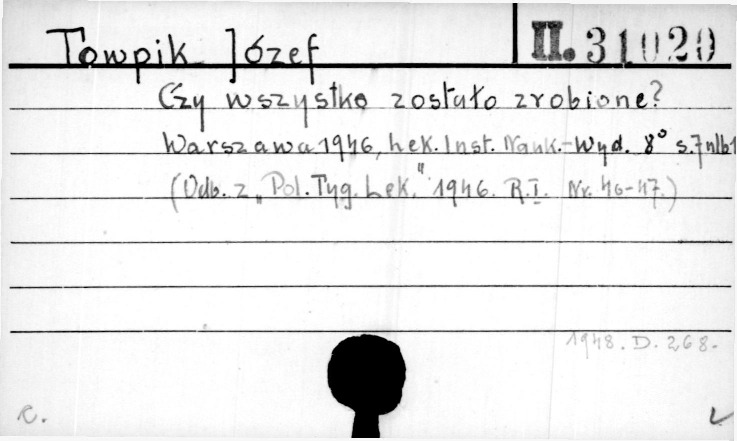 Towpik Józef II. 31020
Czy wszystko zostało zrobione?
Warszawa 1946, Lek. Inst. Nauk.-Wyd. 8° s. 7 nlb 1
(Odb. z „Pol. Tyg. Lek." 1946. R. I. Nr. 46-47.)
1948. D. 268.